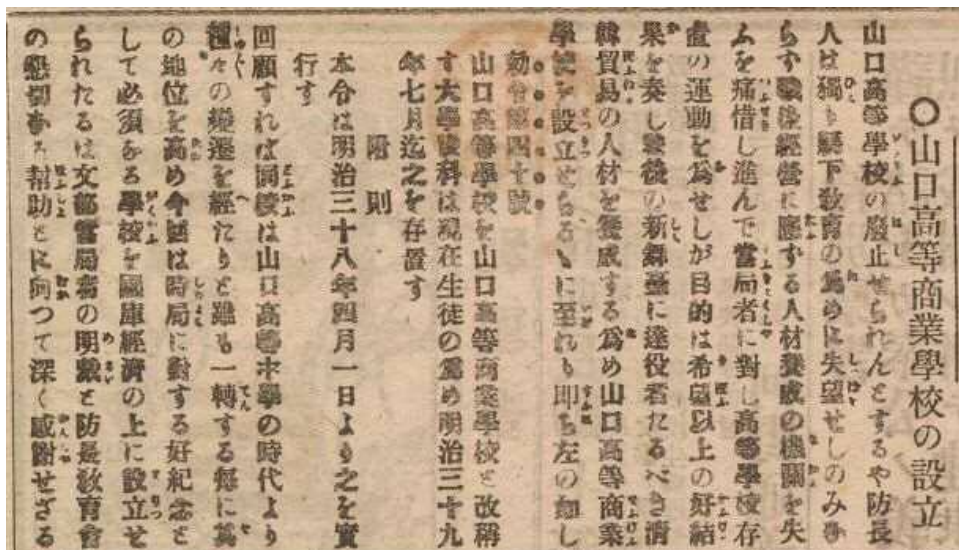 〇山口高等商業學校の設立
山口高等學校の廢止せられんとするや防長
人は獨り縣下教育の爲めに失望せしのみな
らず戰後經營に應ずる人材養成の機關を失
ふを痛惜し進んで當局者に對し高等學校存
置の運動を爲せしが目的は希望以上の好結
果を奏し戰後の新舞臺に達役者たるべき淸
韓貿易の人材を養成する爲め山口高等商業
學校を設立せらるゝに至れり即ち左の如し
勅令第四十號
山口高等學校を山口高等商業學校と改稱
す大學豫科は現在生徒の爲め明治三十九
年七月迄之を存置す
附則
本令は明治三十八年四月一日より之を實
行す
回顧すれば同校は山口高等中學の時代より
種々の變遷を經たりと雖も一轉する每に其
の地位を高め今回は時局に對する好紀念と
して必須なる學校を國庫經濟の上に設立せ
られたるは文部當局者の明鑑と防長敎育會
の懇切なる幇助とに向つて深く感謝せざる